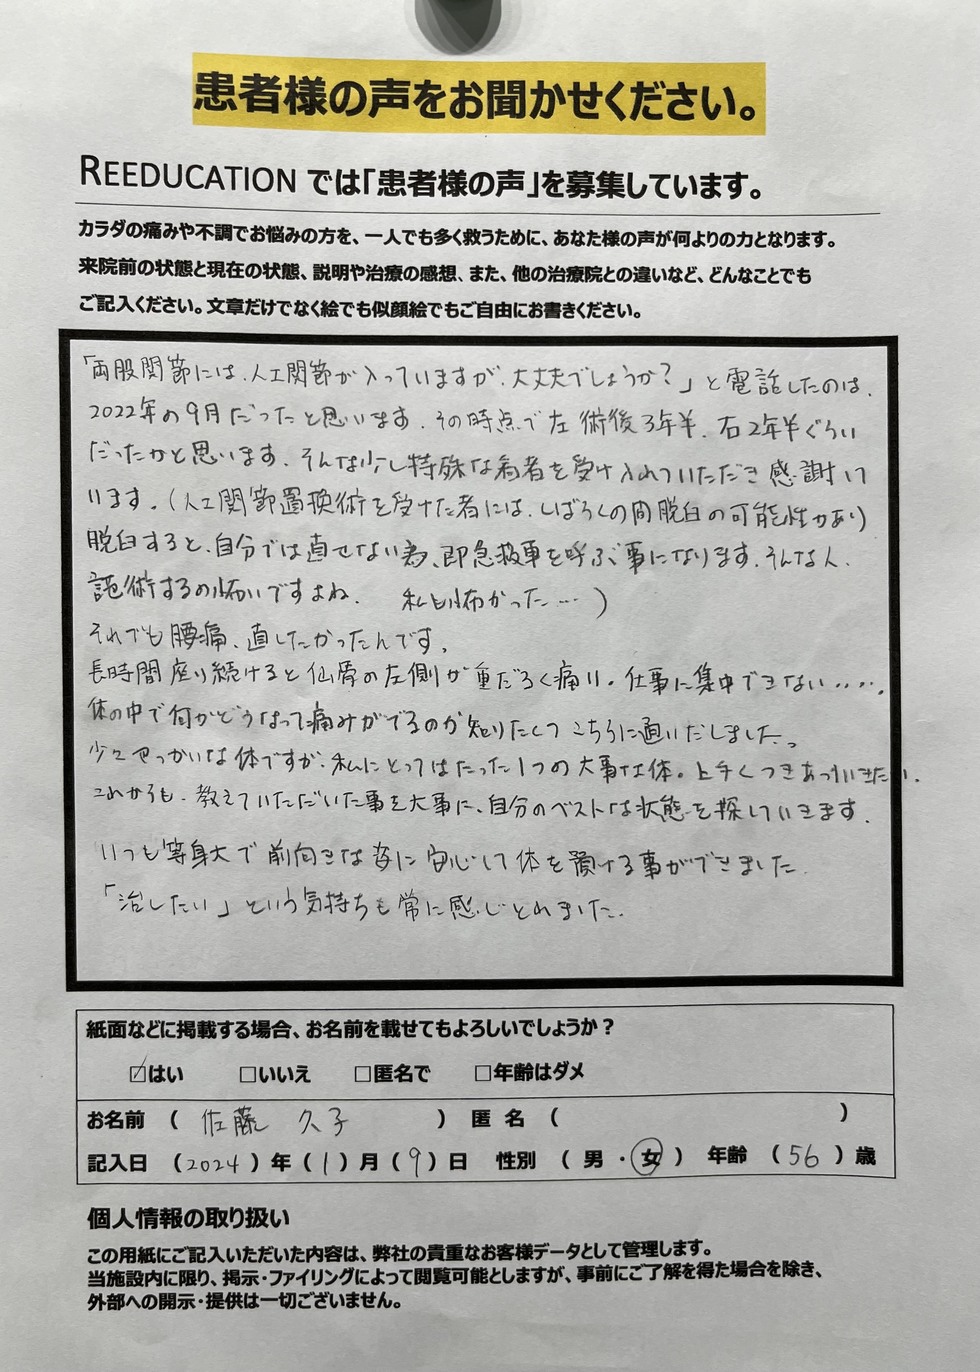 患者様の声をお聞かせください。
REEDUCATION では「患者様の声」を募集しています。
カラダの痛みや不調でお悩みの方を、一人でも多く救うために、あなた様の声が何よりの力となります。
来院前の状態と現在の状態、説明や治療の感想、また、他の治療院との違いなど、どんなことでも
ご記入ください。文章だけでなく絵でも似顔絵でもご自由にお書きください。
「両股関節には、人工関節が入っていますが、大丈夫でしょうか？」と電話したのは、
2022年の9月だったと思います。その時点で左 術後3年半、右2年半ぐらい
だったかと思います。そんな少し特殊な患者を受け入れていただき感謝して
います。(人工関節置換術を受けた者には、しばらくの間脱臼の可能性があり
脱臼すると、自分では直せない為、即急救車を呼ぶ事になります。そんな人、
施術するの怖いですよね。 私も怖かった…)
それでも腰痛、直したかったんです。
長時間座り続けると仙骨の左側が重だるく痛い。仕事に集中できない…..
体の中で何がどうなって痛みがでるのか知りたくてこちらに通いだしました。
少々やっかいな体ですが、私にとってはたった1つの大事な体。上手くつきあっていきたい。
これからも、教えていただいた事を大事に、自分のベストな状態を探していきます。
いつも等身大で前向きな姿に安心して体を預ける事ができました。
「治したい」という気持ちも常に感じとれました。
紙面などに掲載する場合、お名前を載せてもよろしいでしょうか？
☑はい □いいえ □匿名で □年齢はダメ
お名前 （ 佐藤 久子 ） 匿 名 （ ）
記入日 （2024）年（1）月（9）日 性別 （ 男 ・ 女 ） 年齢 （56）歳
個人情報の取り扱い
この用紙にご記入いただいた内容は、弊社の貴重なお客様データとして管理します。
当施設内に限り、掲示・ファイリングによって閲覧可能としますが、事前にご了解を得た場合を除き、
外部への開示・提供は一切ございません。